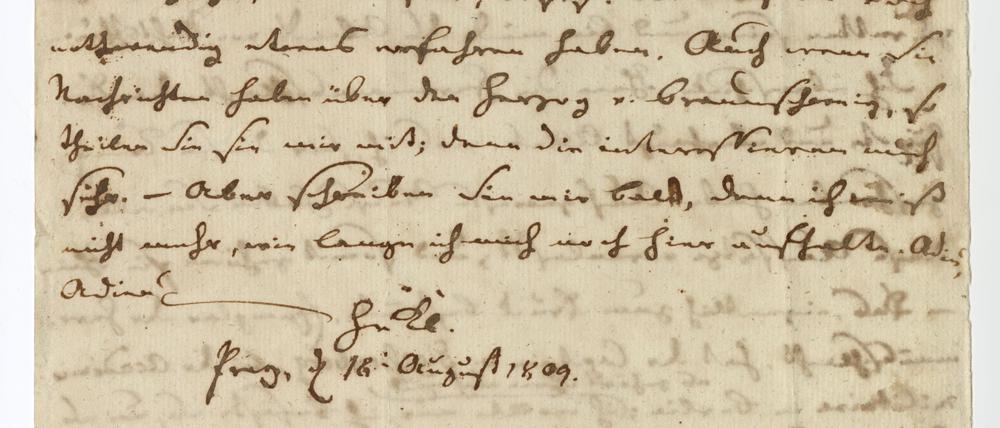 nothwendig etwas erfahren haben. Auch wenn Sie
Nachrichten haben über den Herzog v. Braunschweig, so
theilen Sie sie mir mit; denn die interessieren mich
sehr. — Aber schreiben Sie mir bald, denn ich weiß
nicht mehr, wie lange ich mich noch hier aufhalte. Adieu,
Adieu
HvKl.
Prag, d 18t August 1809.